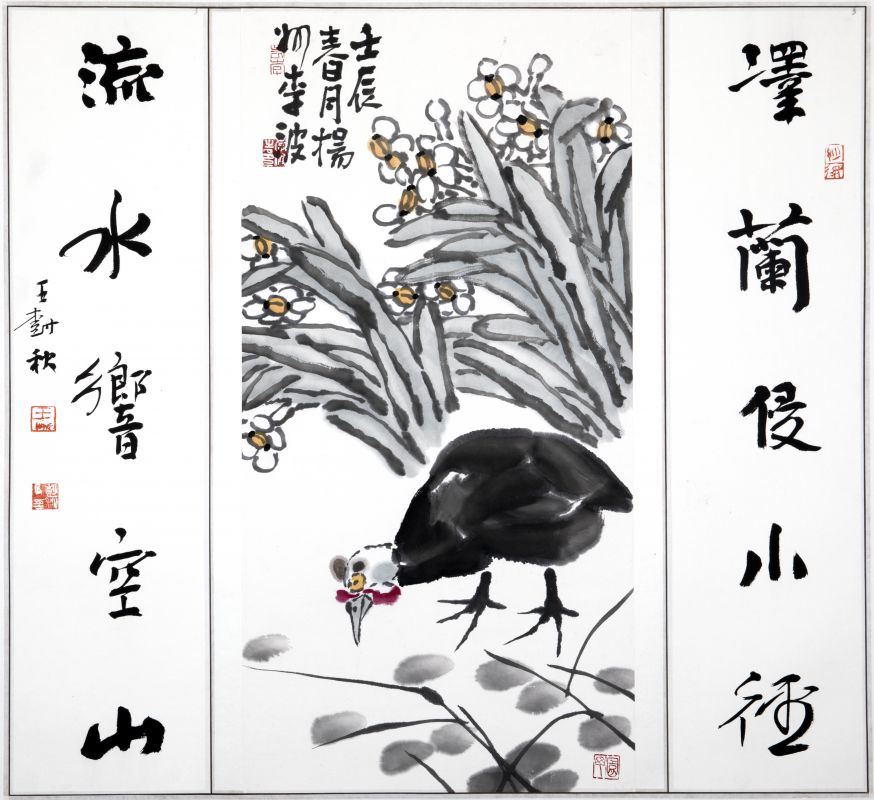 澤蘭侵小徑
壬辰
春月揚
州李波
流水響空山
王樹秋